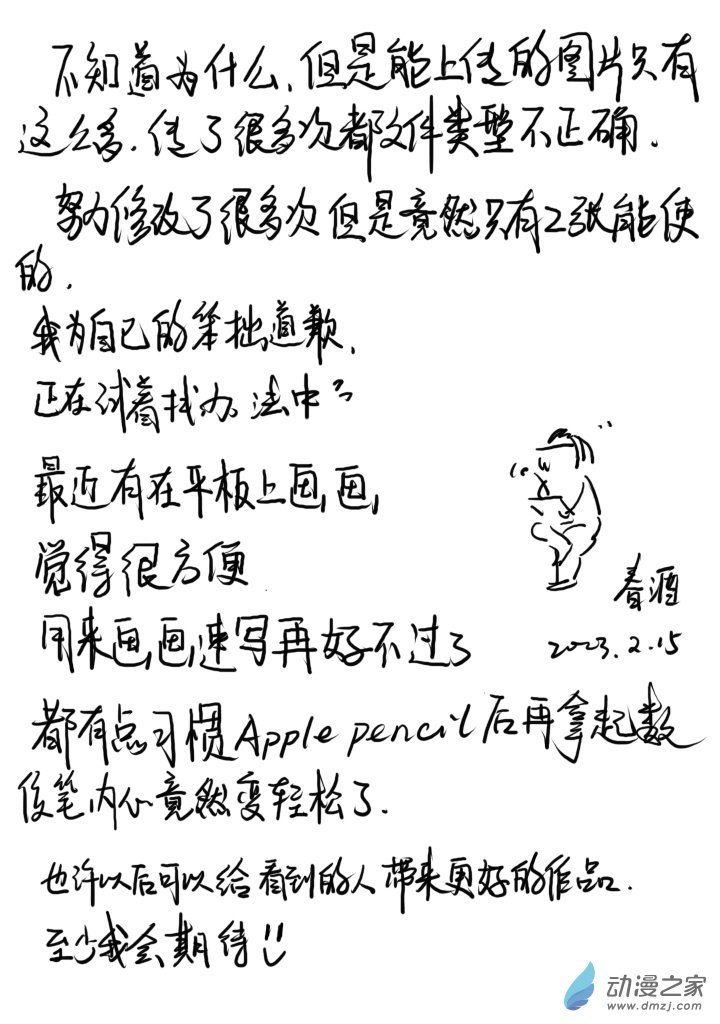 不知道为什么,但是能上传的图片只有
这么多.传了很多次都文件类型不正确.
努力修改了很多次但是竟然只有2张能使
的.
我为自己的笨拙道歉,
正在试着找办法中
最近有在平板上画画,
觉得很方便
用来画画,速写再好不过了
春酒
2023.2.15
都有点习惯Apple pencil后再拿起数
位笔,内心竟然变轻松了.
也许以后可以给看到的人带来更好的作品.
至少我会期待!!
动漫之家
www.dmzj.com